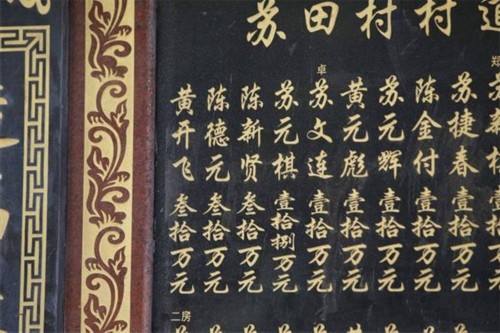 苏田村村
黄开飞 叁拾万元
陈德元 叁拾万元
陈新贤 叁拾万元
苏元棋 壹拾捌万元
卓
苏文连 壹拾万元
黄元彪 壹拾万元
苏元辉 壹拾万元
陈金付 壹拾万元
苏捷春 壹拾万元
郑
二房